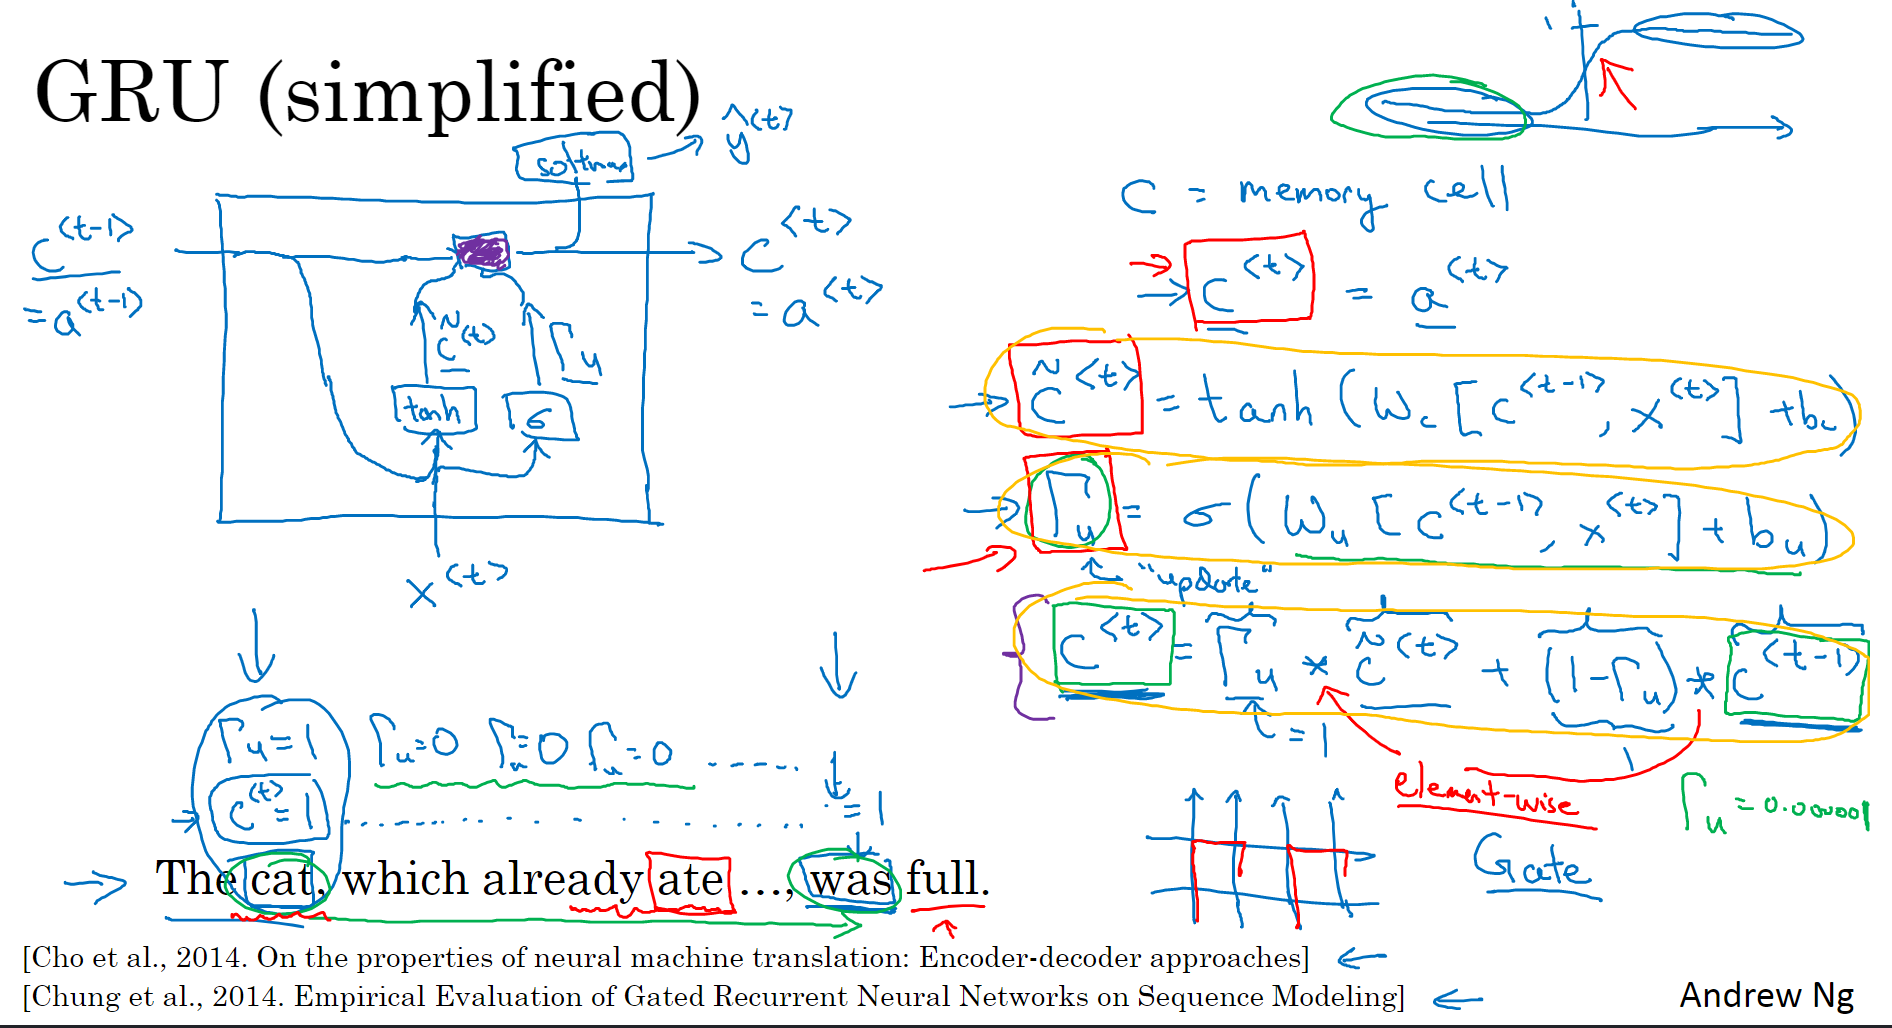 GRU (simplified)
softmax
ŷ<t>
c<t-1>
= a<t-1>
c̃<t>
Γu
tanh
σ
x<t>
c<t>
= a<t>
1
C = memory cell
c<t> = a<t>
c̃<t> = tanh (Wc [c<t-1>, x<t>] + bc)
Γu = σ (Wu [c<t-1>, x<t>] + bu)
"update"
c<t> = Γu * c̃<t> + (1-Γu) * c<t-1>
= 1
element-wise
Γu = 0.000001
Gate
Γu=1 Γu=0 Γu=0 Γu=0 .....
c<t>=1 ........ = 1
The cat, which already ate ..., was full.
[Cho et al., 2014. On the properties of neural machine translation: Encoder-decoder approaches]
[Chung et al., 2014. Empirical Evaluation of Gated Recurrent Neural Networks on Sequence Modeling]
Andrew Ng